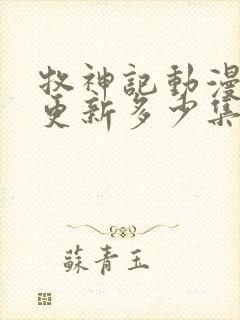 牧神記動漫
更新多少集
蘇青玉